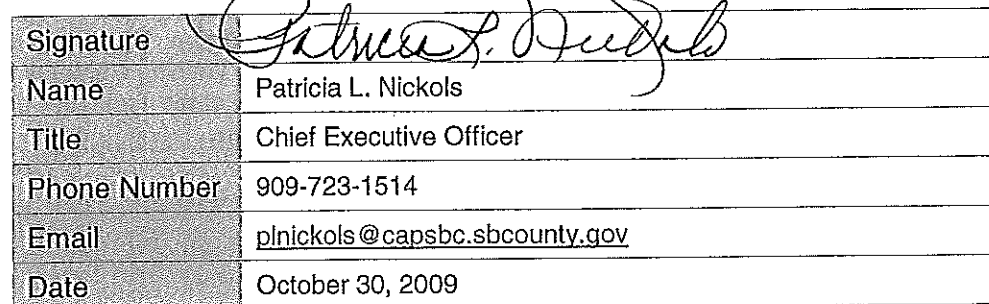 Signature Patricia L. Nickols
Name Patricia L. Nickols
Title Chief Executive Officer
Phone Number 909-723-1514
Email plnickols@capsbc.sbcounty.gov
Date October 30, 2009